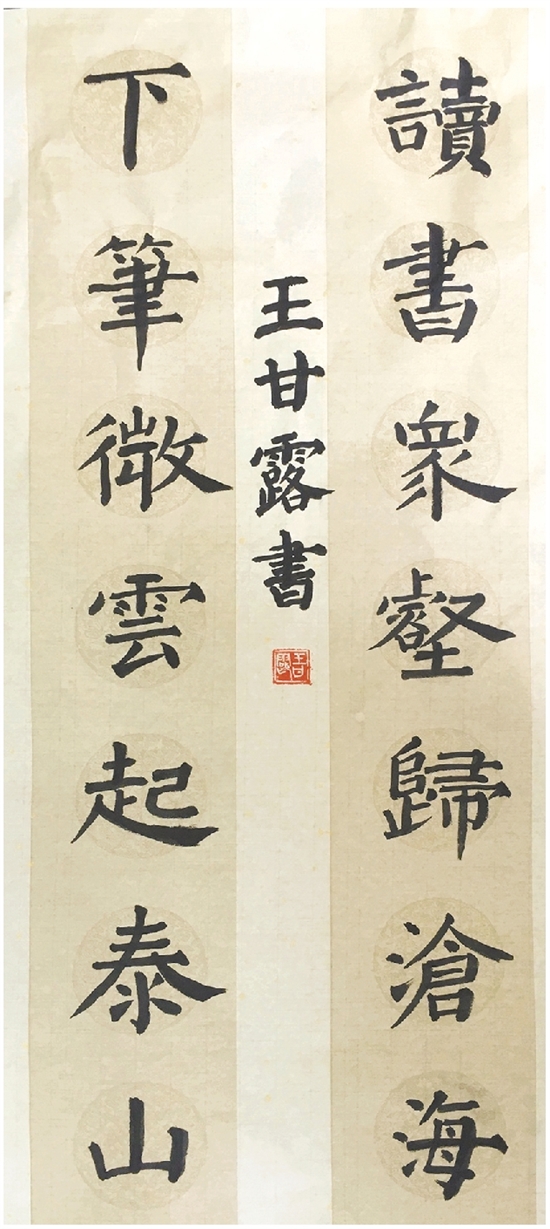 讀書衆壑歸滄海
下筆微雲起泰山
王甘露書
王甘露